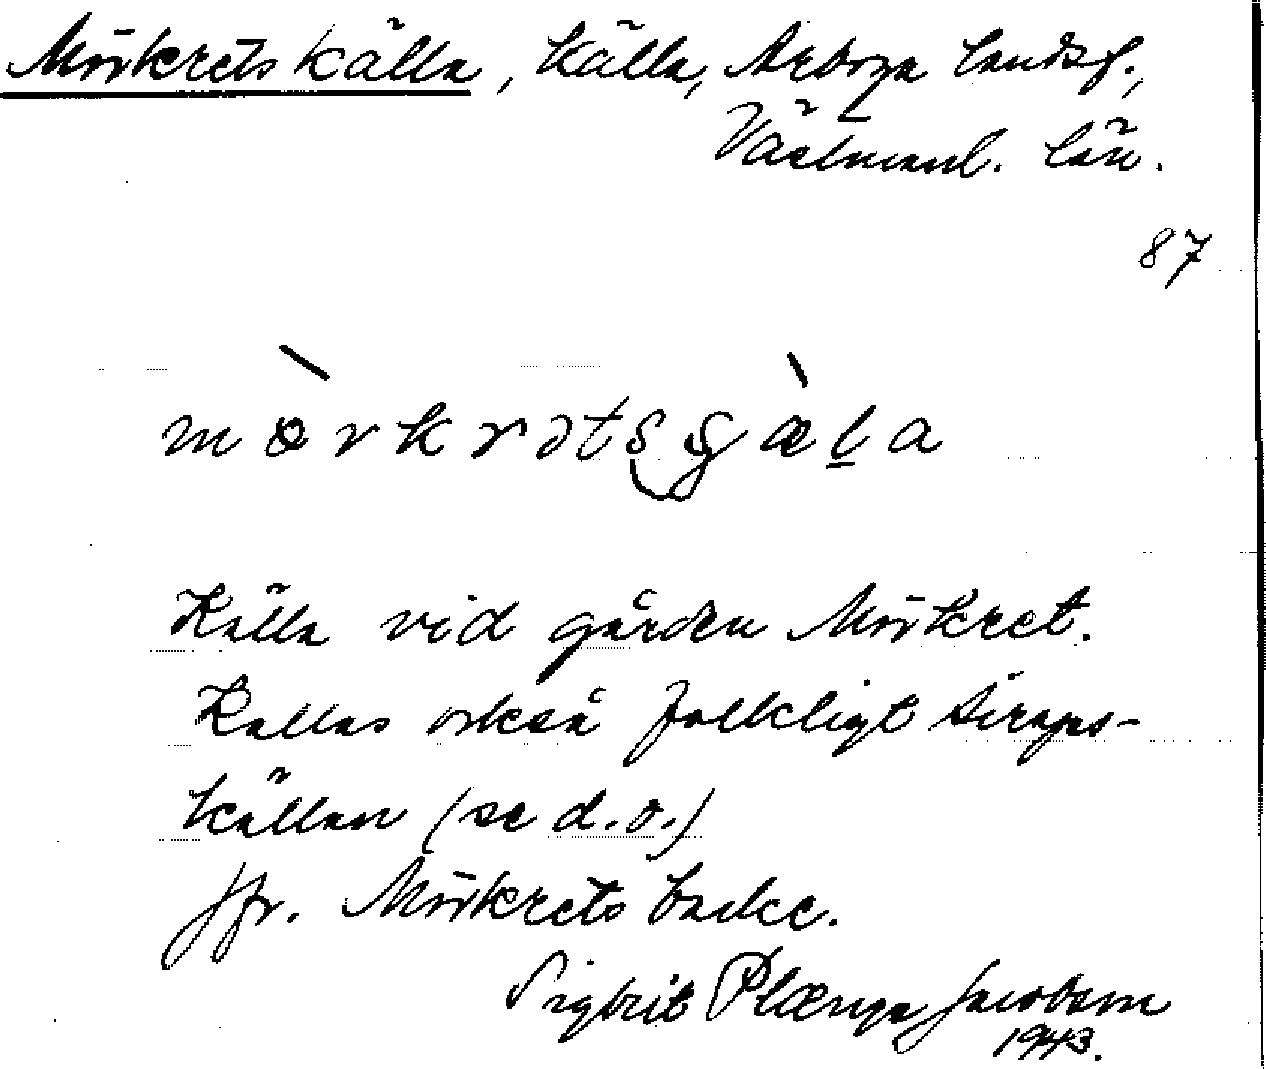 Mörkrets källa, källa, Arboga landsf.,
Västmanl. län.
87
mòrkrəts ʂæ̀la
Källa vid gården Mörkret.
Kallas också folkligt Siraps-
källan (se d.o.)
Jfr. Mörkrets backe.
Sigbrit Plænge Jacobson
1943.